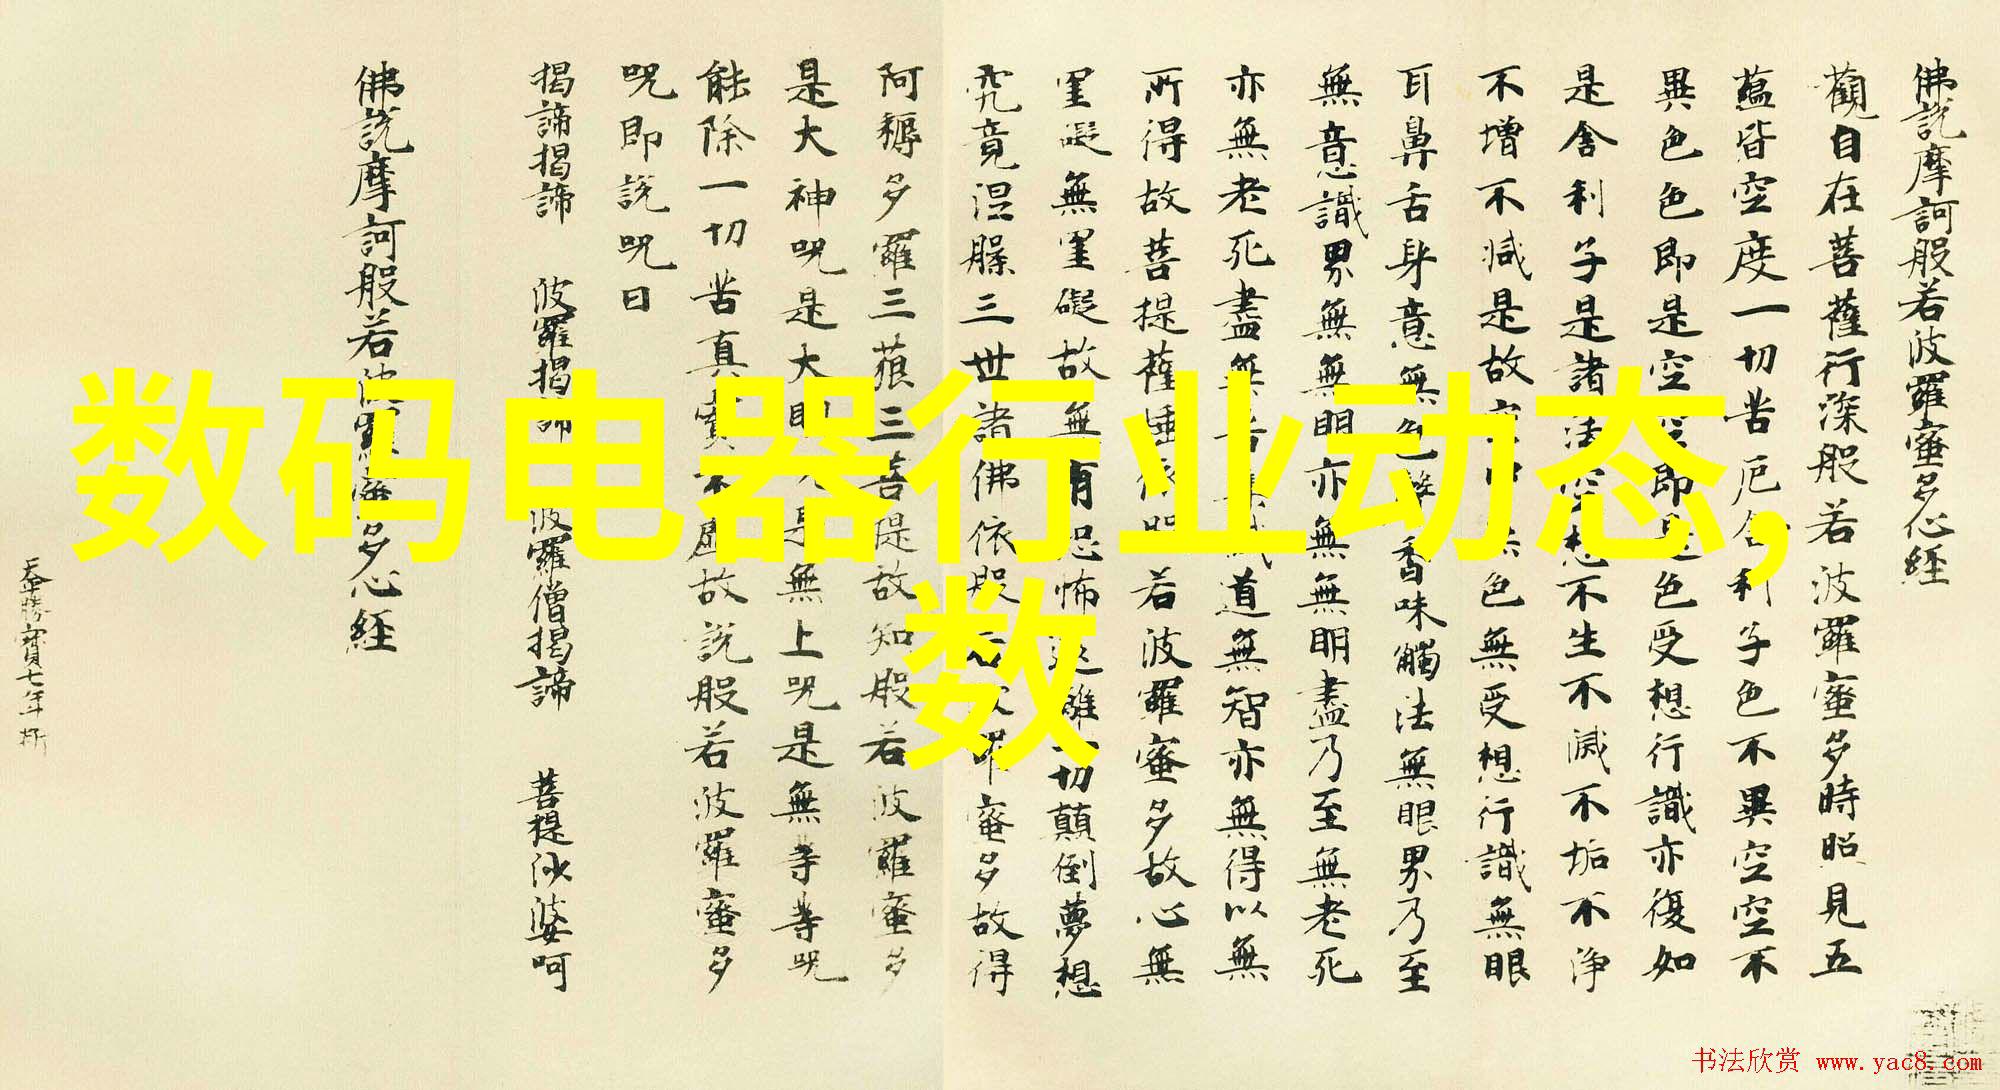 佛說摩訶般若波羅蜜多心経
觀自在菩薩行深般若波羅蜜多時照見五
蘊皆空度一切苦厄舎利子色不異空空不
異色色即是空空即是色受想行識亦復如
是舎利子是諸法空想不生不滅不垢不浄
不增不減是故空中無色無受想行識無眼
耳鼻舌身意無色聲香味觸法無眼界乃至
無意識界無無明亦無無明盡乃至無老死
亦無老死盡無苦集滅道無智亦無得以無
所得故菩提薩埵依般若波羅蜜多故心無
罣礙無罣礙故無有恐怖遠離一切顛倒夢想
究竟涅槃三世諸佛依般若波羅蜜多故得
阿耨多羅三藐三菩提故知般若波羅蜜多
是大神咒是大明咒是無上咒是無等等咒
能除一切苦真實不虛故説般若波羅蜜多
咒即說咒曰
揭諦揭諦 波羅揭諦 波羅僧揭諦 菩提沙婆呵
佛說摩訶般若波羅蜜多心経
勝寳七年
数码电器行业动态,
数
书法欣赏 www.yac8.com